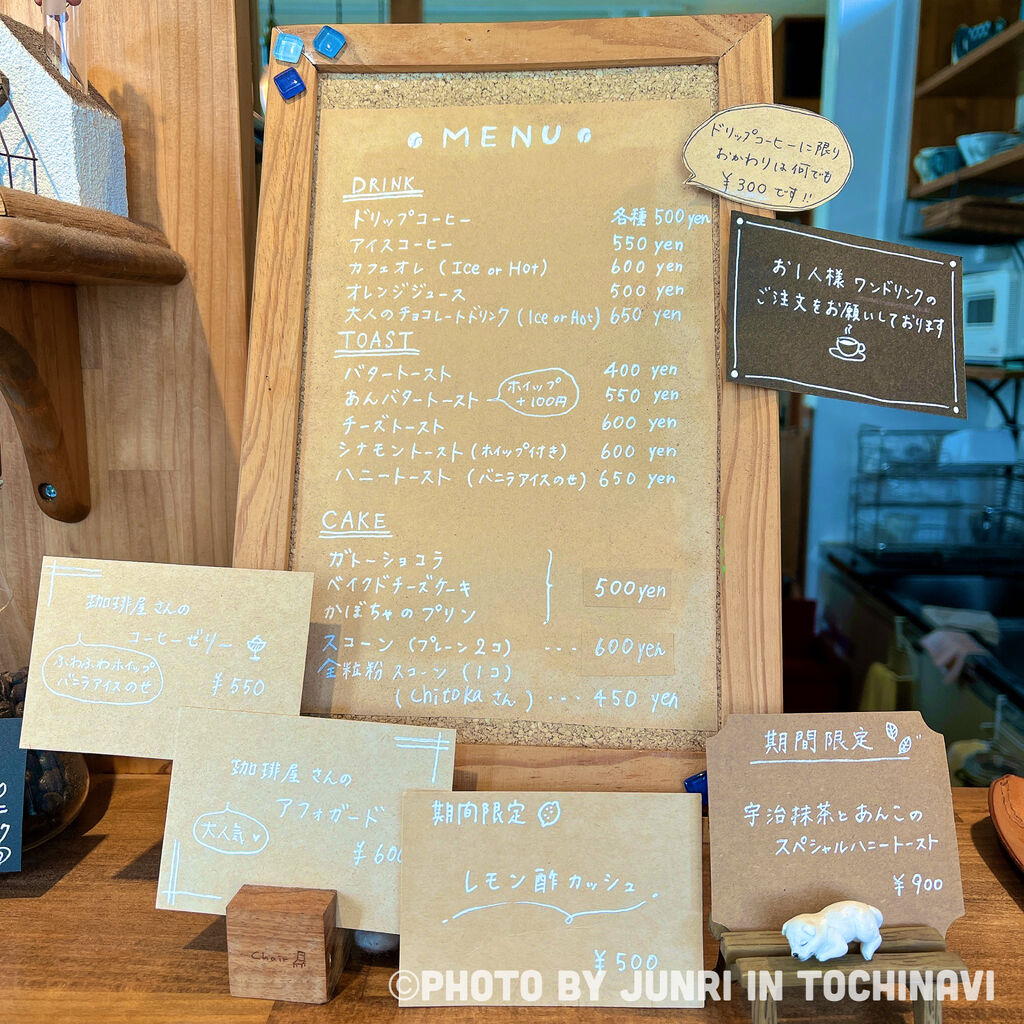 MENU
DRINK
ドリップコーヒー 各種 500yen
アイスコーヒー 550 yen
カフェオレ (Ice or Hot) 600 yen
オレンジジュース 500 yen
大人のチョコレートドリンク (Ice or Hot) 650 yen
TOAST
バタートースト 400 yen
あんバタートースト 550 yen
ホイップ
+100円
チーズトースト 600 yen
シナモントースト (ホイップ付き) 600 yen
ハニートースト (バニラアイスのせ) 650 yen
CAKE
ガトーショコラ
ベイクドチーズケーキ 500yen
かぼちゃのプリン
スコーン (プレーン2コ) ... 600yen
全粒粉スコーン (1コ)
(chitokaさん) ... 450 yen
ドリップコーヒーに限り
おかわりは何でも
¥300です!!
お1人様 ワンドリンクの
ご注文をお願いしております
珈琲屋さんの
コーヒーゼリー
ふわふわホイップ
バニラアイスのせ
¥550
珈琲屋さんの
アフォガード
大人気
¥600
期間限定
レモン酢カッシュ
¥500
期間限定
宇治抹茶とあんこの
スペシャルハニートースト
¥900
Chair
©PHOTO BY JUNRI IN TOCHINAVI